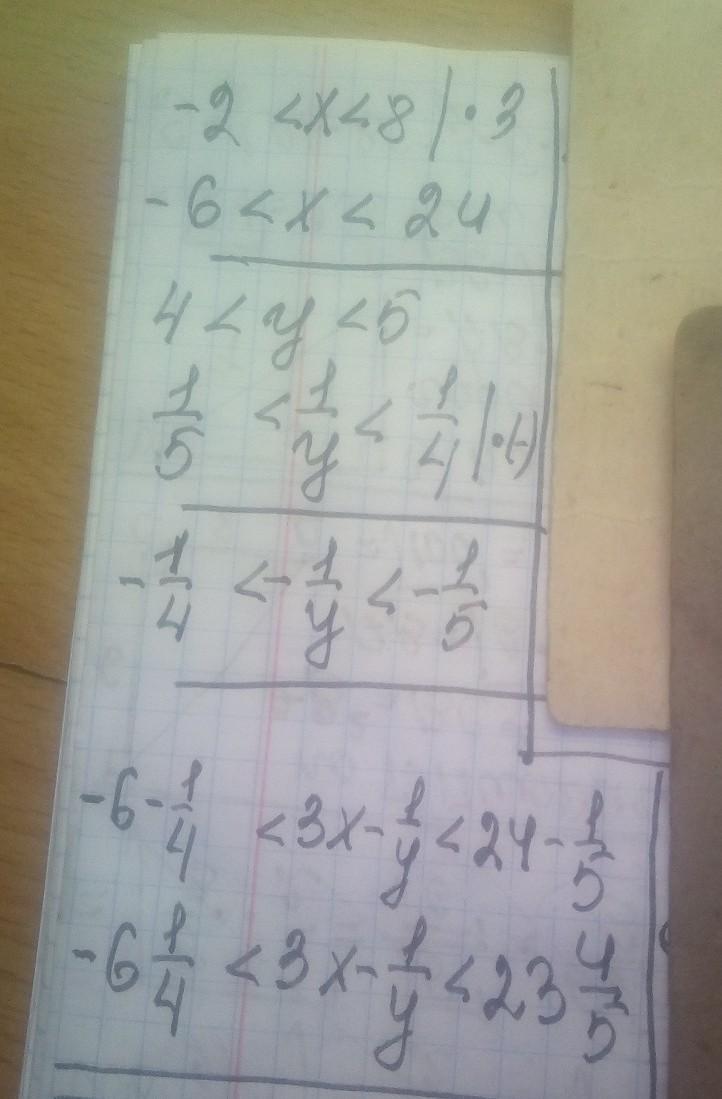 -2 < x < 8 | · 3
-6 < x < 24
4 < y < 5
1/5 < 1/y < 1/4 | · (-)
-1/4 < -1/y < -1/5
-6 - 1/4 < 3x - 1/y < 24 - 1/5
-6 1/4 < 3x - 1/y < 23 4/5